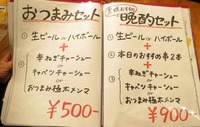 おつまみセット
① 生ビール or ハイボール
+
② 辛ねぎチャーシュー
or
キャベツチャーシュー
or
おつまみ極太メンマ
¥500-
晩酌セット
① 生ビール or ハイボール
+
② 本日のおすすめ串2本
+
③ 辛ねぎチャーシュー
or
キャベツチャーシュー
or
おつまみ極太メンマ
¥900